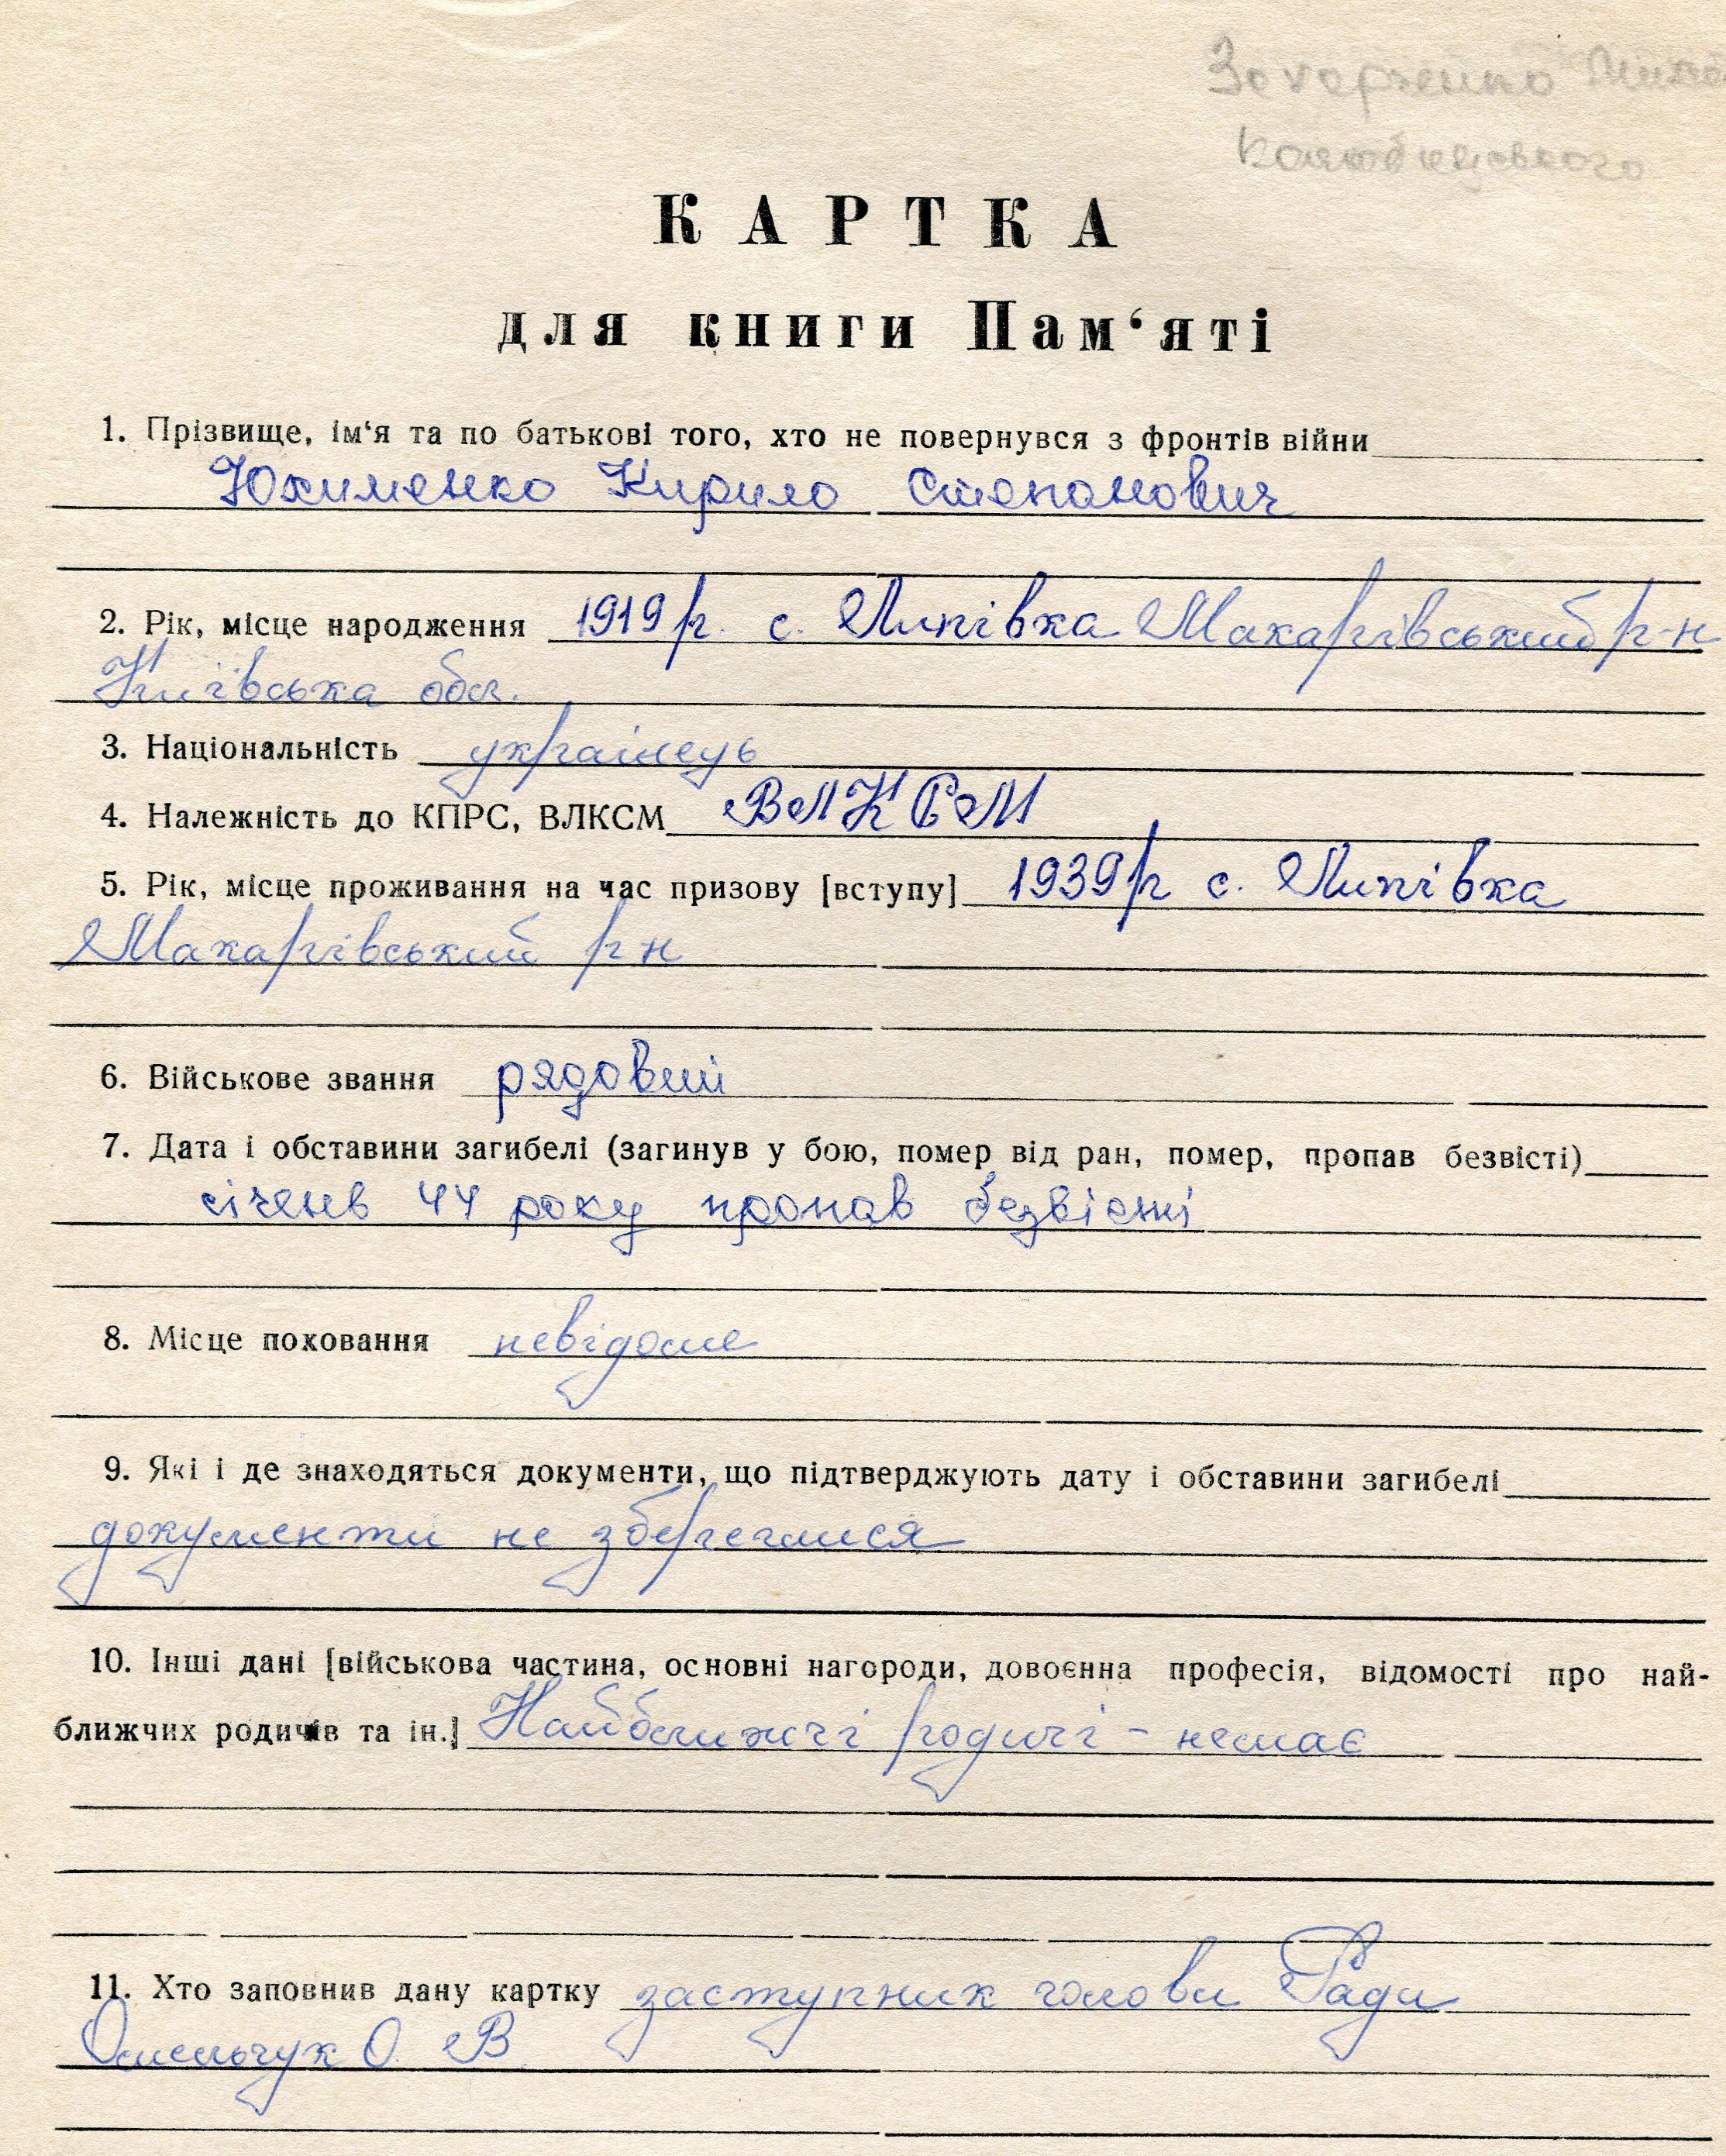 КАРТКА
для книги Пам‘яті
1. Прізвище, ім‘я та по батькові того, хто не повернувся з фронтів війни
Юхименко Кирило Степанович
2. Рік, місце народження 1919 р. с. Липівка Макарівський р-н
Київська обл.
3. Національність українець
4. Належність до КПРС, ВЛКСМ ВЛКСМ
5. Рік, місце проживання на час призову [вступу] 1939 р с. Липівка
Макарівський р н
6. Військове звання рядовий
7. Дата і обставини загибелі (загинув у бою, помер від ран, помер, пропав безвісті)
січень 44 року пропав безвісті
8. Місце поховання невідоме
9. Які і де знаходяться документи, що підтверджують дату і обставини загибелі
документи не збереглися
10. Інші дані [військова частина, основні нагороди, довоєнна професія, відомості про най-
ближчих родичів та ін.] Найближчі родичі - немає
11. Хто заповнив дану картку заступник голови Ради
Омельчук О. В